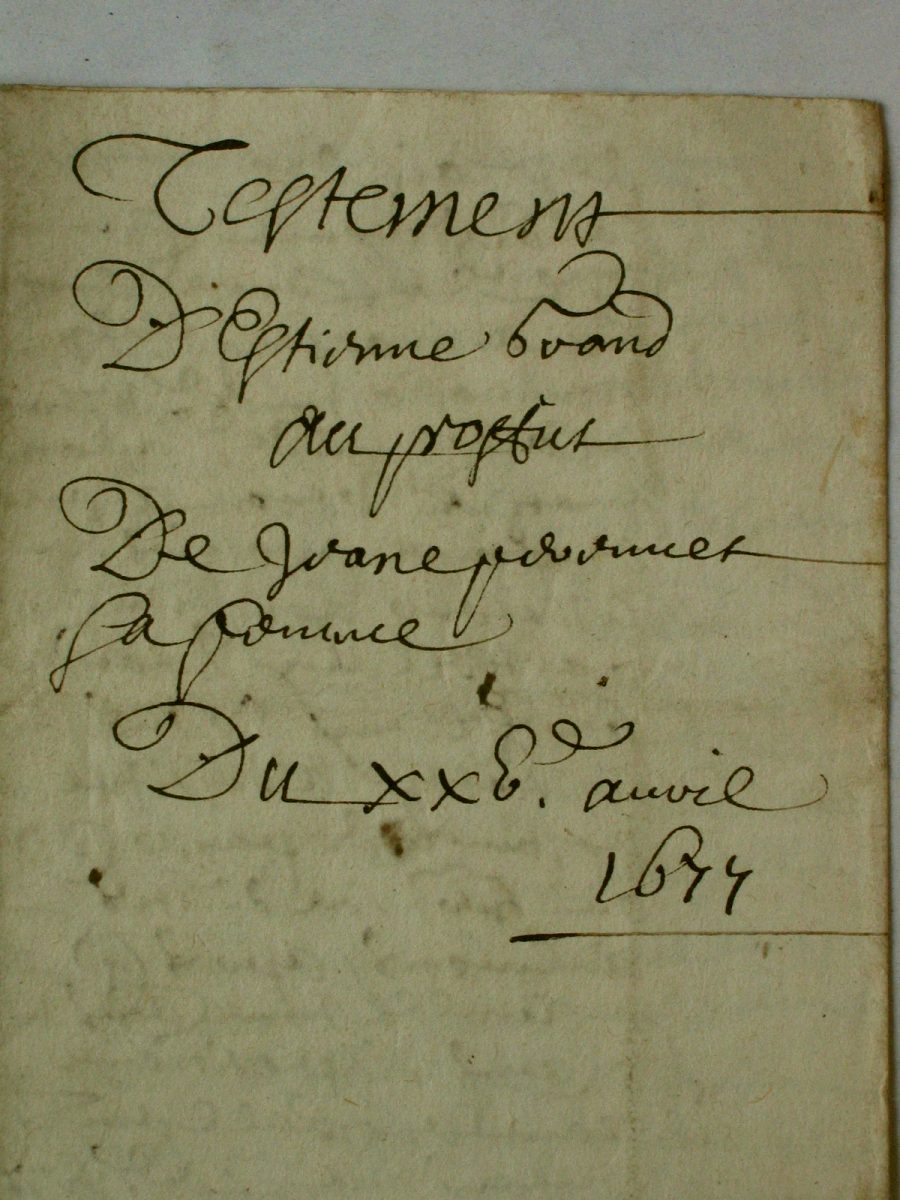 Testement
D'Estienne brand
au proffit
De Jeane peironnet
sa femme
Du xxve. apvril
1677